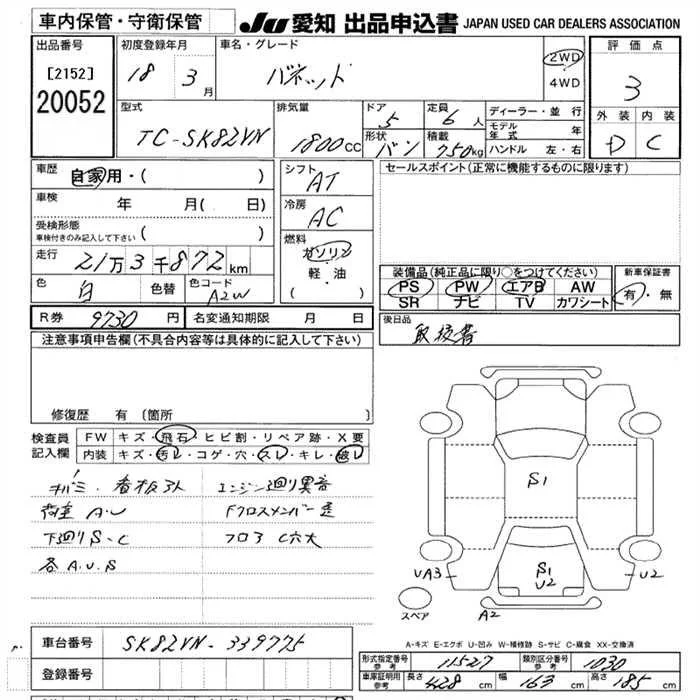 車内保管・守衛保管
JU 愛知 出品申込書 JAPAN USED CAR DEALERS ASSOCIATION
出品番号 初度登録年月 車名・グレード 評価点
[2152] 18 3月 バネット 2WD 3
20052 4WD 外装 内装
型式 排気量 ドア 5 定員 6人 ディーラー・並行 D C
モデル年式 年
TC-SK82VN 1800cc 形状 バン 積載 750kg ハンドル 左・右
車歴 自家用・( ) シフト AT セールスポイント(正常に機能するものに限ります)
車検 年 月( 日) 冷房 AC
受検形態
車検付きのみ記入して下さい ( )
燃料 ガソリン
走行 21万3千872km 軽・油
( )
装備品(純正品に限り○をつけてください) 新車保証書
色 白 色替 色コード A2W PS PW エアB AW 有・無
SR ナビ TV カワシート
R券 9730円 名変通知期限 月 日 後日品
取扱書
注意事項申告欄(不具合内容等は具体的に記入して下さい)
修復歴 有(箇所 )
検査員 FW キズ・飛石・ヒビ割・リペア跡・X要
記入欄 内装 キズ・汚レ・コゲ・穴・スレ・キレ・破レ
S1
看板 エンジン廻り異音
荷室 A.U Fクロスメンバー
下廻りS・C フロア C穴大
各A.U.S
S1
UA3 U2 U2
スペア A2
A-キズ E-エクボ U-凹み W-補修跡 S-サビ C-腐食 XX-交換済
車台番号 SK82VN-339775
形式指定番号 参考 11527 類別区分番号 参考 1030
登録番号
車庫証明用 参考 長さ 428cm 幅 163cm 高さ 185cm